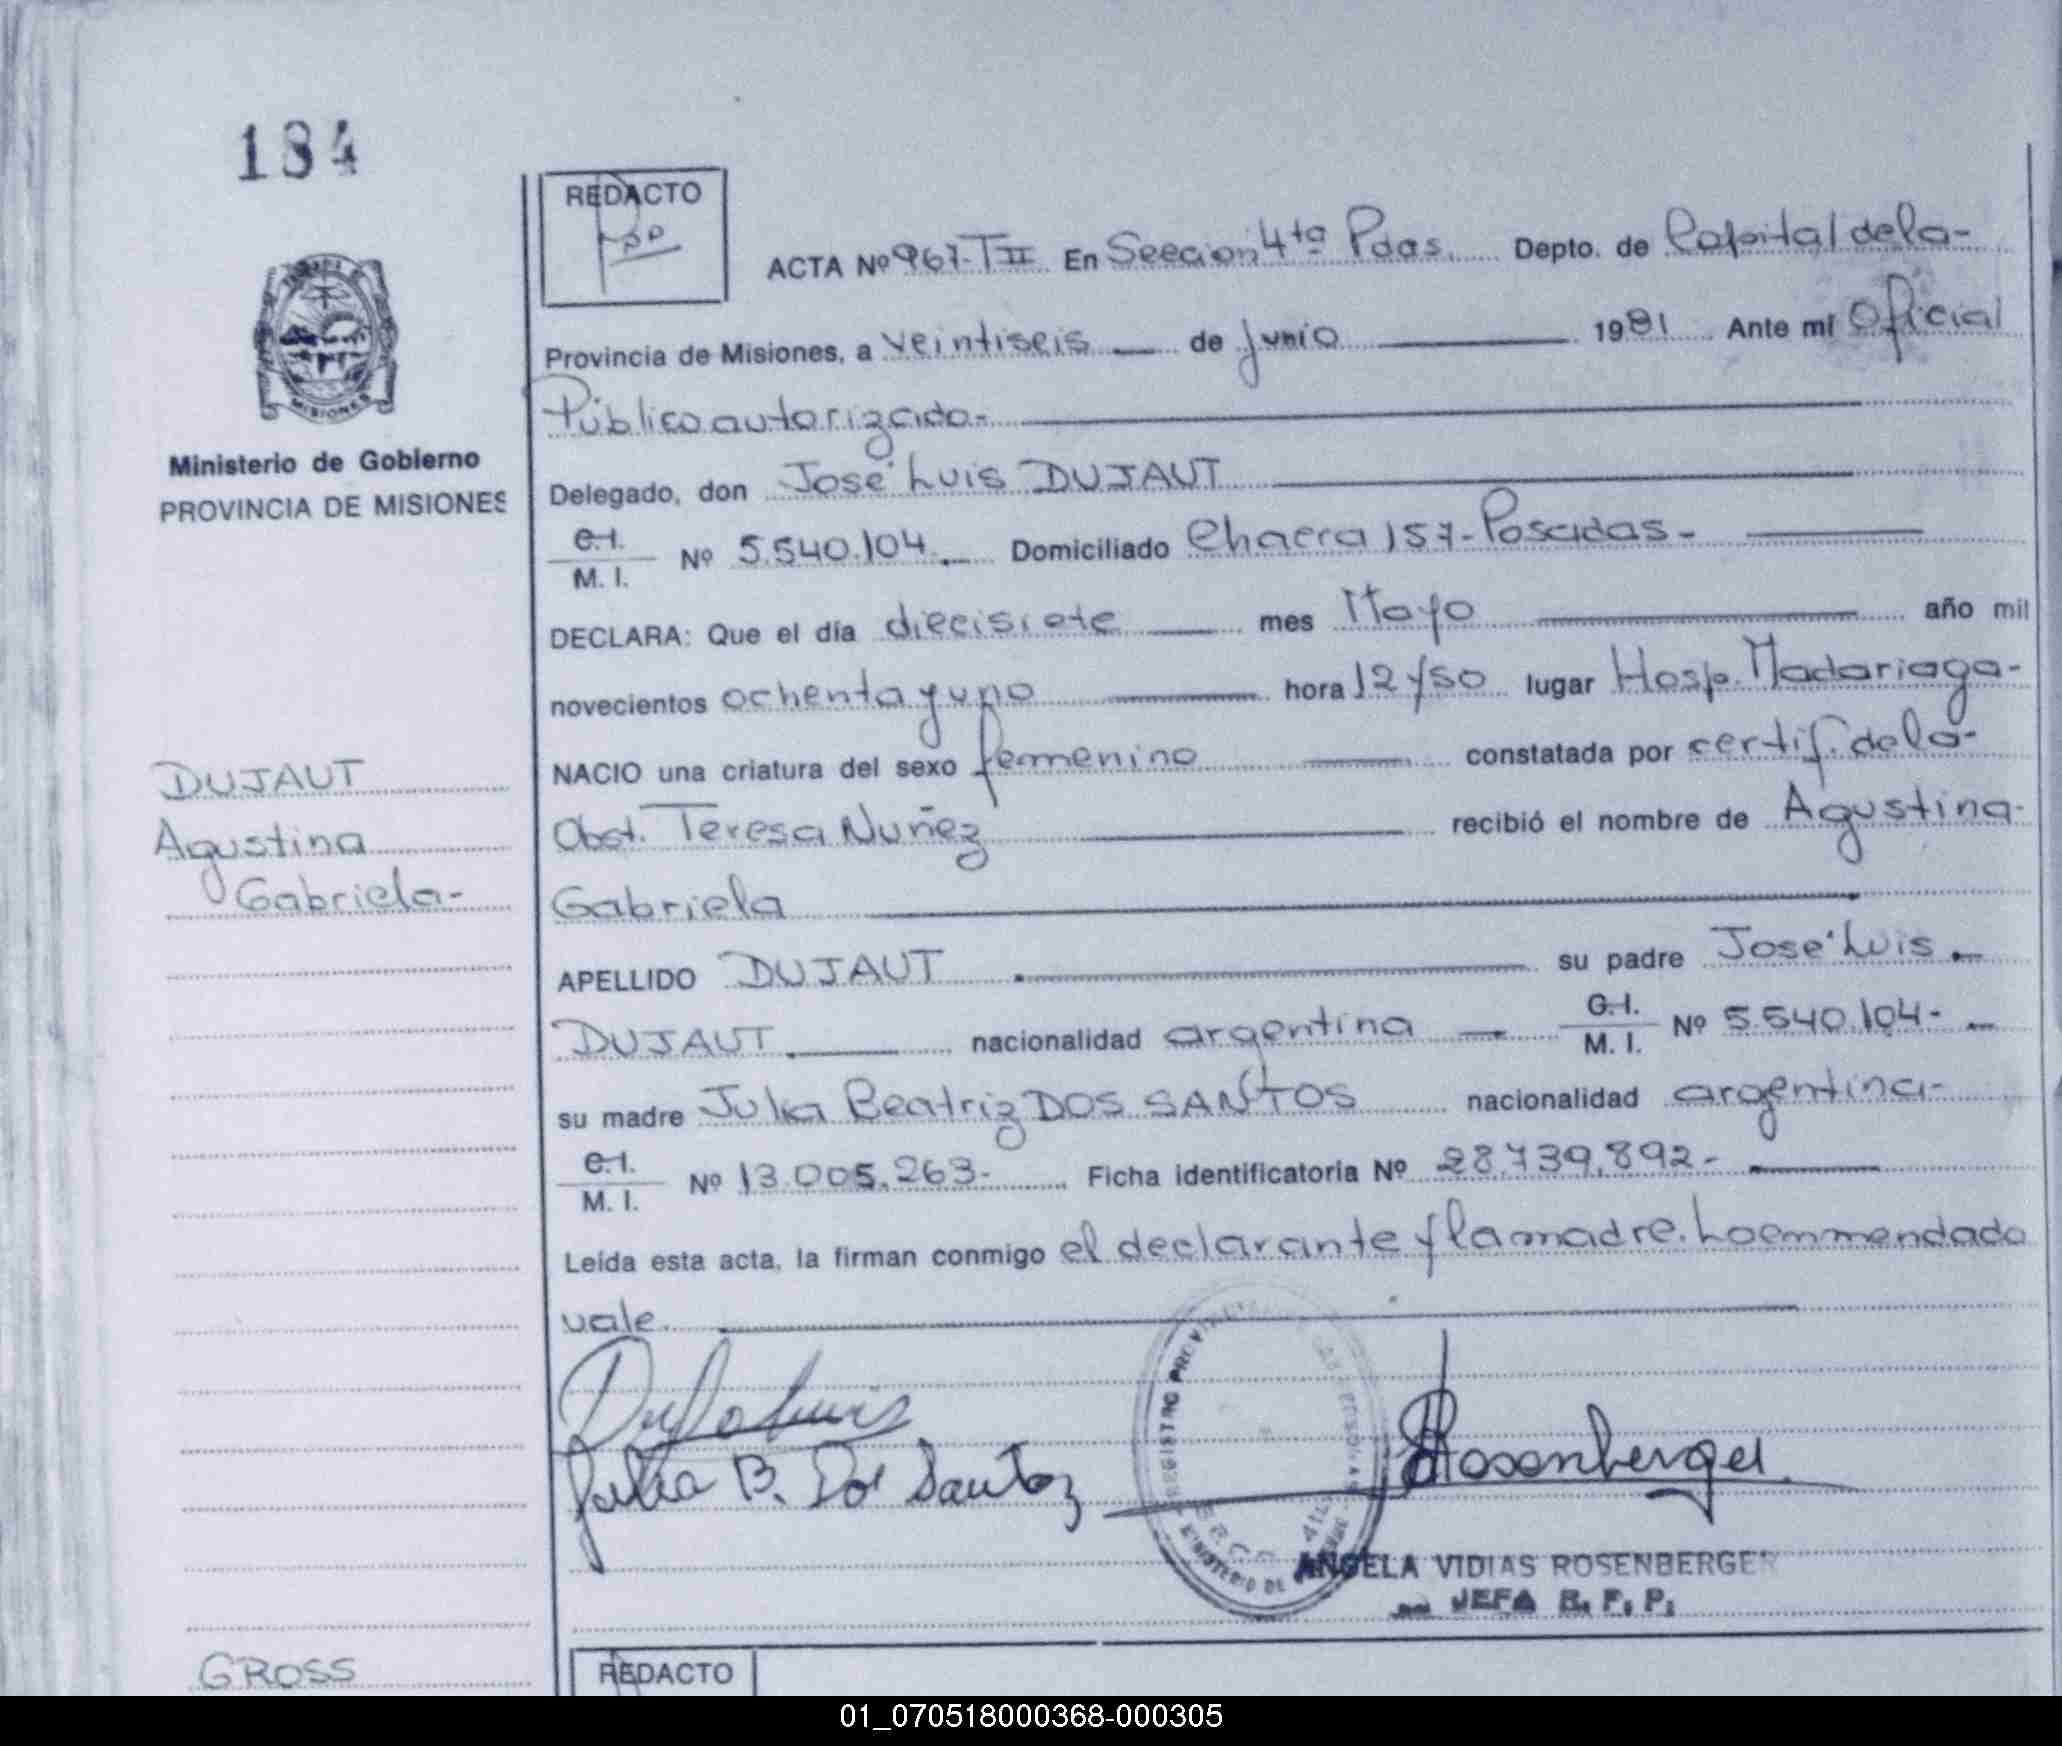 184
REDACTO
ACTA Nº 967-TII En Sección 4ta Pdas. Depto. de Capital de la-
Provincia de Misiones, a veintiseis de junio 1981 Ante mí Oficial
Público autorizado-
Ministerio de Gobierno
PROVINCIA DE MISIONES
Delegado, don José Luis DUJAUT
C.I. M. I. Nº 5.540.104 Domiciliado Chacra 157-Posadas-
DECLARA: Que el día diecisiete mes Mayo año mil
novecientos ochenta y uno hora 12/50 lugar Hosp. Madariaga-
NACIO una criatura del sexo femenino constatada por certif. de la-
Obst. Teresa Nuñez recibió el nombre de Agustina-
Gabriela
DUJAUT
Agustina
Gabriela-
APELLIDO DUJAUT su padre José Luis
DUJAUT nacionalidad argentina C.I. M. I. Nº 5.540.104-
su madre Julia Beatriz DOS SANTOS nacionalidad argentina-
C.I. M. I. Nº 13.005.263- Ficha identificatoria Nº 28.739.892-
Leída esta acta, la firman conmigo el declarante y la madre. Lo emmendado
vale.
Julia B. Dos Santoz
Rosenberger
REGISTRO PROVINCIAL
MINISTERIO DE
ANGELA VIDIAS ROSENBERGER
JEFA R. P. P.
GROSS
REDACTO
01_070518000368-000305